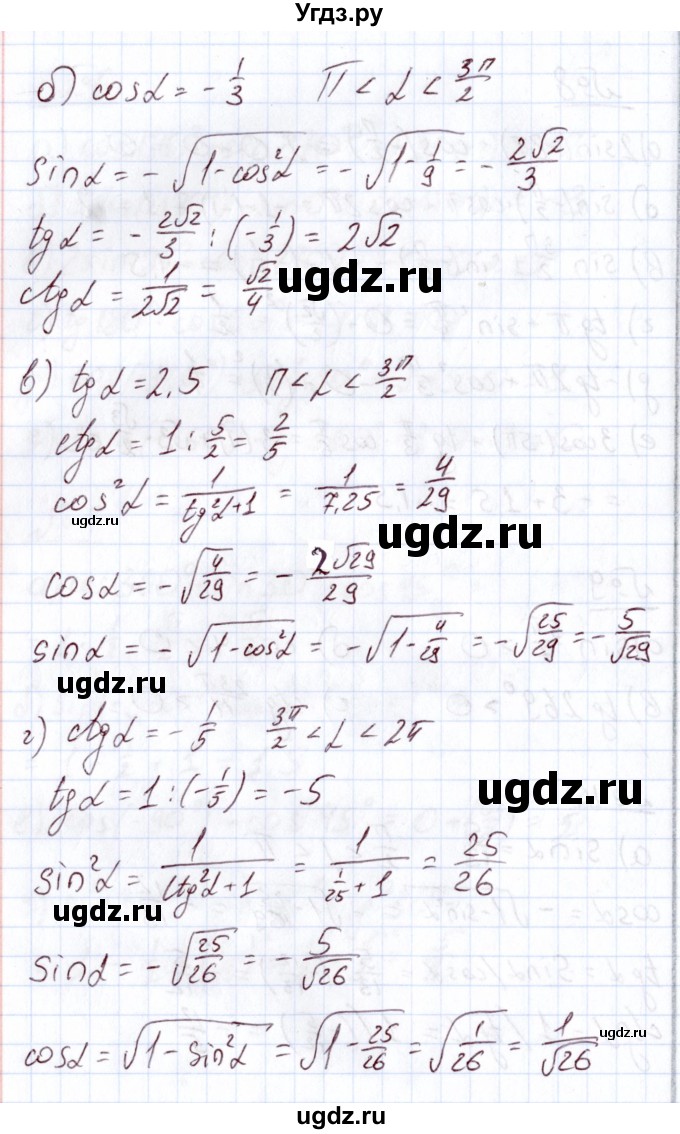 Угдз.ру
б) cosα = - 1/3   π < α < 3π/2
sinα = - √(1-cos²α) = - √(1 - 1/9) = - 2√2/3
tgα = - 2√2/3 : (- 1/3) = 2√2
ctgα = 1/(2√2) = √2/4
ugdz.ru
в) tgα = 2,5   π < α < 3π/2
ctgα = 1 : 5/2 = 2/5
cos²α = 1/(tg²α+1) = 1/7,25 = 4/29
ugdz.ru
ugdz.ru
cosα = - √(4/29) = - 2√29/29
sinα = - √(1-cos²α) = - √(1 - 4/29) = - √(25/29) = - 5/√29
ugdz.ru
г) ctgα = - 1/5   3π/2 < α < 2π
tgα = 1 : (- 1/5) = -5
ugdz.ru
sin²α = 1/(ctg²α+1) = 1/(1/25 + 1) = 25/26
ugdz.ru
sinα = - √(25/26) = - 5/√26
cosα = √(1 - sin²α) = √(1 - 25/26) = √(1/26) = 1/√26
ugdz.ru
ugdz.ru